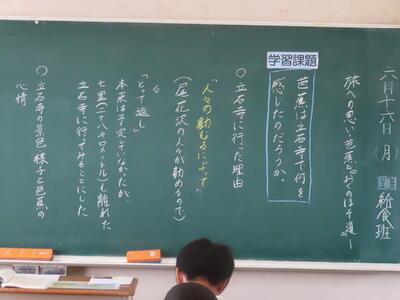 六月十六日(月)
給食班
旅への思い―芭蕉と『おくのほそ道』―
学習課題
芭蕉は立石寺で何を
感じたのだろうか。
○立石寺に行った理由
「人々の勧むるによって」
(尾花沢の人々が勧めるので)
「とって返し」
本来は予定していなかったが、
七里(二十八キロメートル)も離れた
立石寺に行ってみることにした
○立石寺の景色・様子と芭蕉の
心情